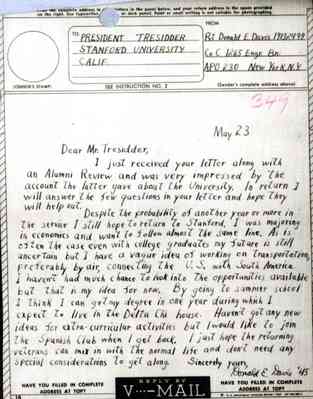 the complete address in plain letters in the panel below, and your return address in the space provided
TO:
PRESIDENT TRESIDDER
STANFORD UNIVERSITY
CALIF.
FROM
Donald E. Davis
Co C 1265 Engr. Bn.
APO 230 New York, N.Y.
(CENSOR'S STAMP)
SEE INSTRUCTION NO. 2
(Sender's complete address above)
349
May 23
Dear Mr. Tresidder,
I just received your letter along with
an Alumni Review and was very impressed by the
account the latter gave about the University. In return I
will answer the few questions in your letter and hope they
will help out.
Despite the probability of another year or more in
the service I still hope to return to Stanford. I was majoring
in economics and want to follow almost the same line. As is
often the case even with college graduates my future is still
uncertain but I have a vague idea of working on transportation,
preferably by air, connecting the U.S. with South America.
I haven't had much chance to look into the opportunities available
but that is my idea for now. By going to summer school
I think I can get my degree in one year during which I
expect to live in the Delta Chi house. Haven't got any new
ideas for extra-curricular activities but I would like to join
the Spanish Club when I get back. I just hope the returning
veterans can mix in with the normal life and don't need any
special considerations to get along. Sincerely yours,
Donald E. Davis '45
HAVE YOU FILLED IN COMPLETE
ADDRESS AT TOP?
REPLY BY
V···—MAIL
HAVE YOU FILLED IN COMPLETE
ADDRESS AT TOP?